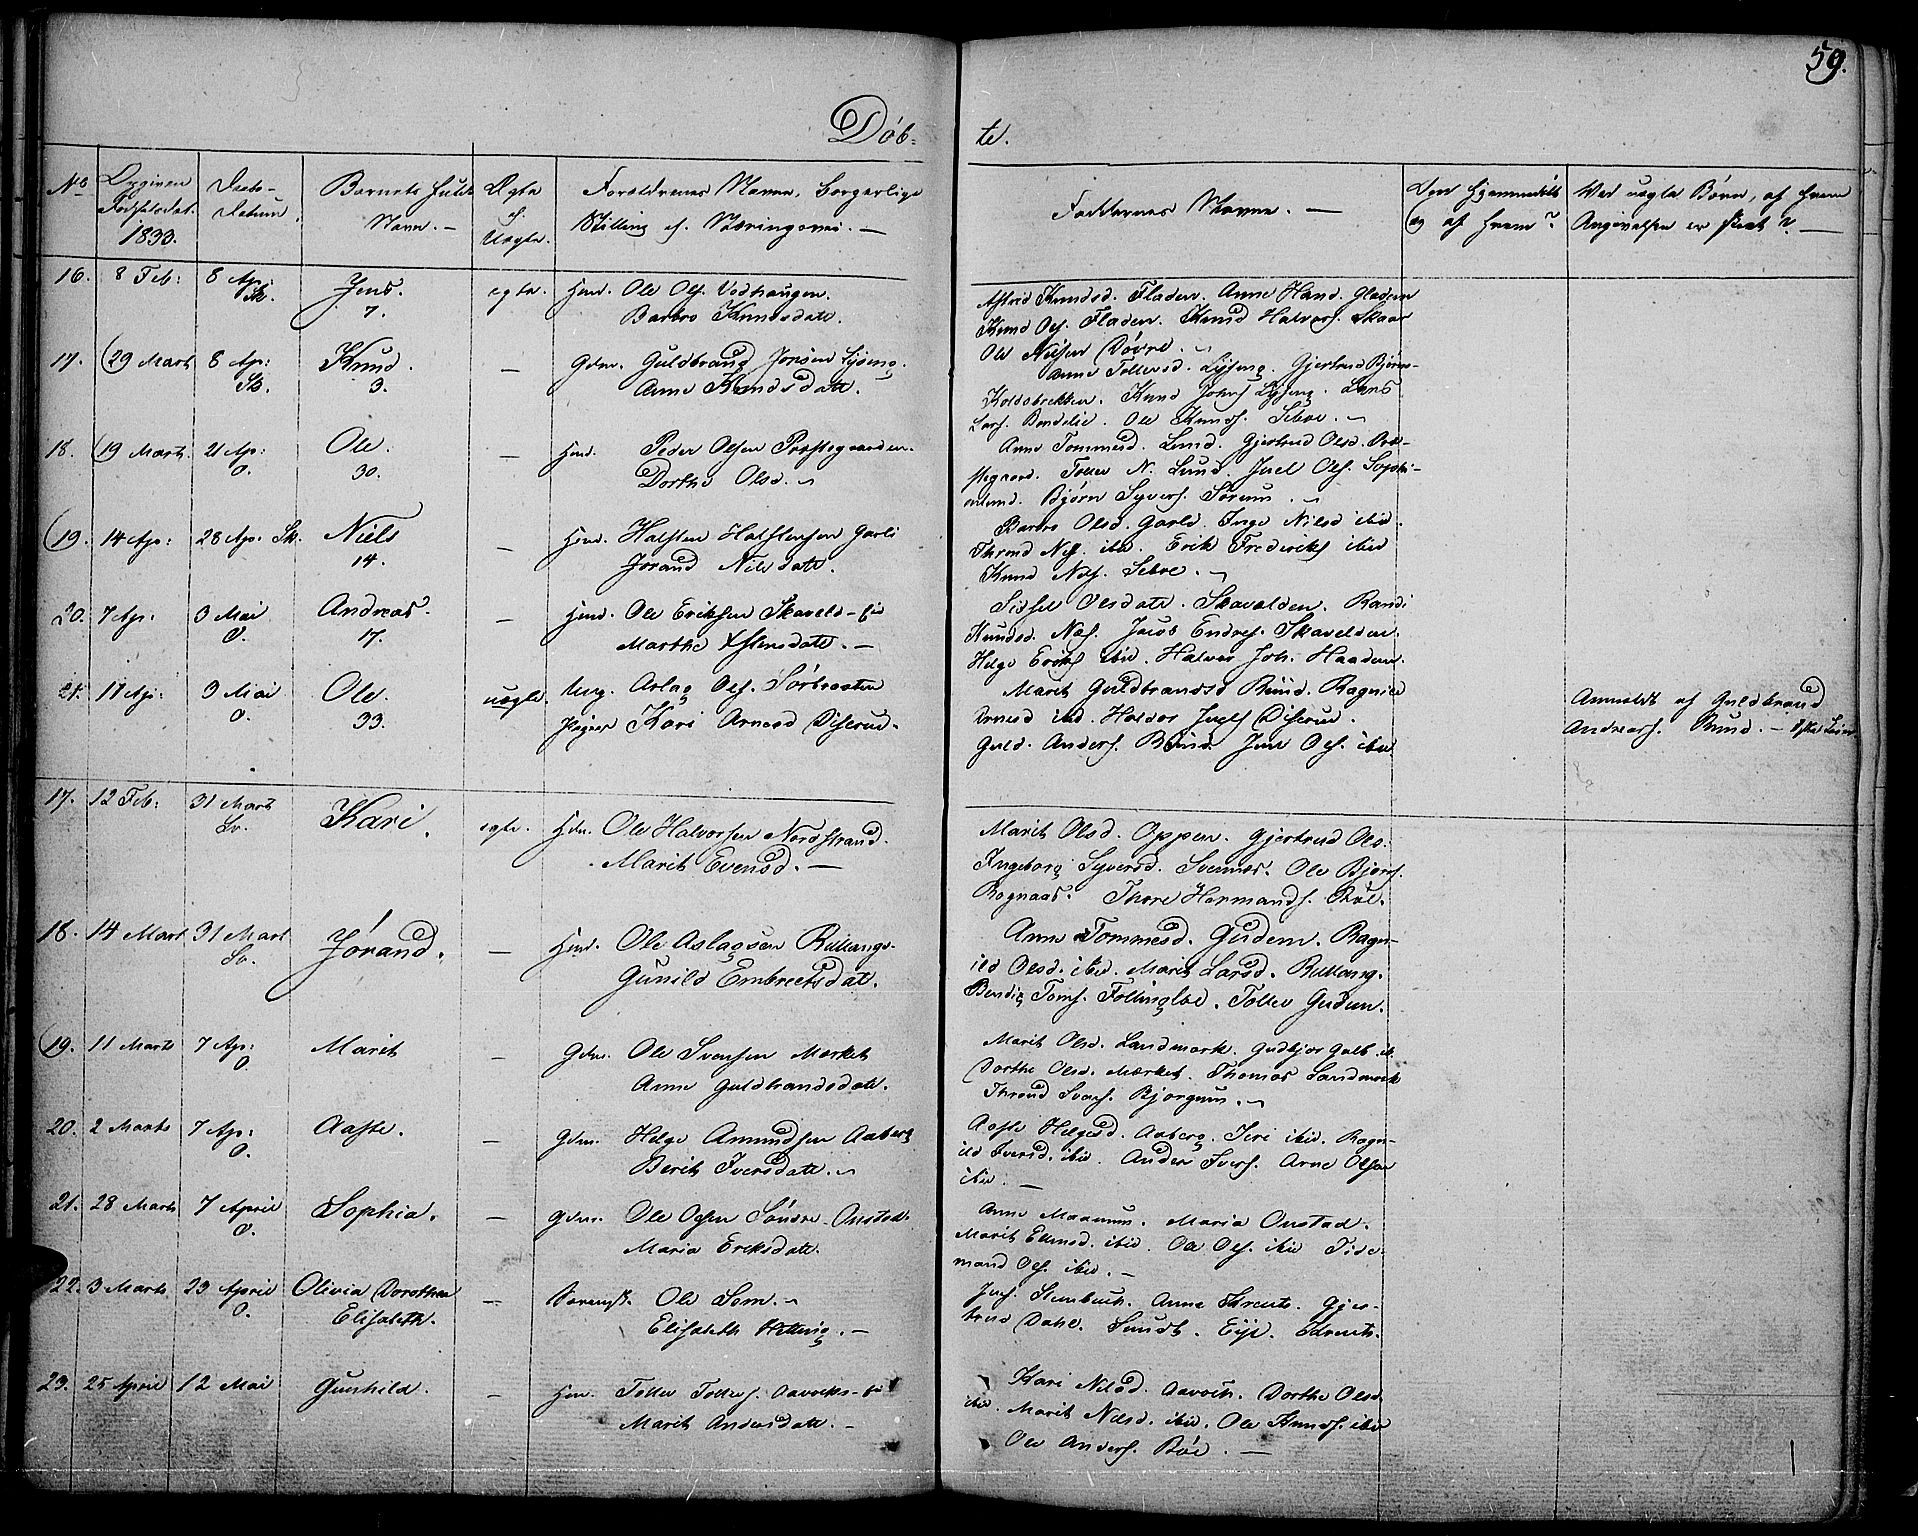 59.
Døb-
te.
No
Opgiven Fødselsdat. 1833.
Daabs-Datum.
Barnets fulde Navn. —
Ægte el. Uægte.
Forældrenes Navne, borgerlige Stilling og Næringsvei. —
Faddernes Navne. —
Om hjemmedøbt og af hvem?
Ved uægte Børn, af hvem Angivelsen er skeet? —
16. 8 Feb: 8 Ap: Sk. Jens. 7. egte. Hmd. Ole Ols. Vedhaugen.
Barbro Knudsdatt.
Astrid Knudsd. Fladen. Anne Hans. Fladen
Knud Ols. Fladen. Knud Halvors. Skaar
Ole Nilsen Døvre.
17. 29 Marts 8 Ap: Sk. Knud. 3. — Gdm. Guldbrand Jonsen
Anne Knudsdatt.
Anne Tollefsd. Gjertrud Bjørns-
Knud Johns. Lars
Lars. Ole Knuds. Seboe.
18. 19 Marts. 21 Ap: O. Ole. 30. — Hmd. Peder Olsen Præstegaarden.
Dorthe Olsd.
Anne Tommesd. Lund. Gjertrud Olsd. Præ-
stegaard. Tollef N. Lund. Juel Ols. Sophi-
enlund. Bjørn Syvers. Sørum.
19. 14 Ap: 28 Ap: Sk. Niels 14. — Hmd. Halsten Halstensen Garli
Jorand Nilsdatt.
Barbro Olsd. Garli. Inge Nilsd ibid.
Thrond Nils. ibid. Erik Frederiks ibid
Knud Nils. Seboe.
20. 7 Ap: 3 Mai O. Andreas. 17. — Hmd. Ole Eriksen Skaveld-eie
Marthe Østensdatt. —
Sidsel Olsdatt. Skavelden. Randi
Knudsd. Næs. Jacob Endres. Skavelden.
Helge Eriks ibid. Halvor Joh. Haaden.
21. 17 Ap: 3 Mai O. Ole. 33. uegte. Ung. Aslag Ols. Sørbraaten
Pigen Kari Arnesd Diserud.
Marit Guldbrandsd Ruud. Ragnild
Arnesd ibid. Haldor Ingls Diserud.
Guld. Anders. Ruud. Jens Ols. ibid
Anmeldt af Guldbrand
Andreas. Ruud. —
17. 12 Feb: 31 Marts Sv. Kari. egte. Hdm. Ole Halvorsen Nordstrand.
Marit Evensd. —
Marit Olsd. Oppen. Gjertrud Ols.
Ingeborg Syversd. Svennes. Ole Bjørns.
Rognaas. Thore Hermands. Bøe.
18. 14 Mart 31 Mart Sv. Jørand. — Hmd. Ole Aslagsen Rullangs-
Gunild Embretsdat.
Anne Tommesd. Guden. Ragn-
ild Olsd. ibid. Marit Larsd. Rullang.
Bendig Toms. Follingloe. Tollev Guden.
19. 11 Marts 7 Ap: O. Marit — Gdm. Ole Svensen Mærket
Anne Guldbrandsdatt.
Marit Olsd. Landmark. Gudbjør Gulb. ib.
Dorthe Olsd. Mærket. Thomas Landmark
Thrond Svens. Bjørgum.
20. 2 Marts 7 Ap: O. Aaste. — Gdm. Helge Amundsen Aaberg
Berit Iversdatt.
Aaste Helgesd. Aaberg. Siri ibid. Ragn-
ild Iversd. ibid. Anders Ivers. Arne Olsen
ibid. —
21. 28 Marts 7 April O. Sophia. — Gdm. Ole Olsen Søndre-Onstad.
Maria Eriksdatt.
Anne Maanum. Maria Onstad.
Marit Ellensd. ibid. Ole Ols. ibid Tide-
mand Ols. ibid. —
22. 3 Marts 23 April O. Olivia Dorothea Elisabeth. — Ole Lem.
Elisabeth
Anne Gjer-
trud Dahl. Sundt.
23. 25 April 12 Mai Gunhild. — Hmd. Tollev Tollevs. Aavoks-eie
Marit Andersdatt. —
Kari Nilsd. Aavok. Dorthe Olsd.
ibid. Marit Nilsd. ibid. Ole Amunds. ibid
Ole Anders. Bøe. —